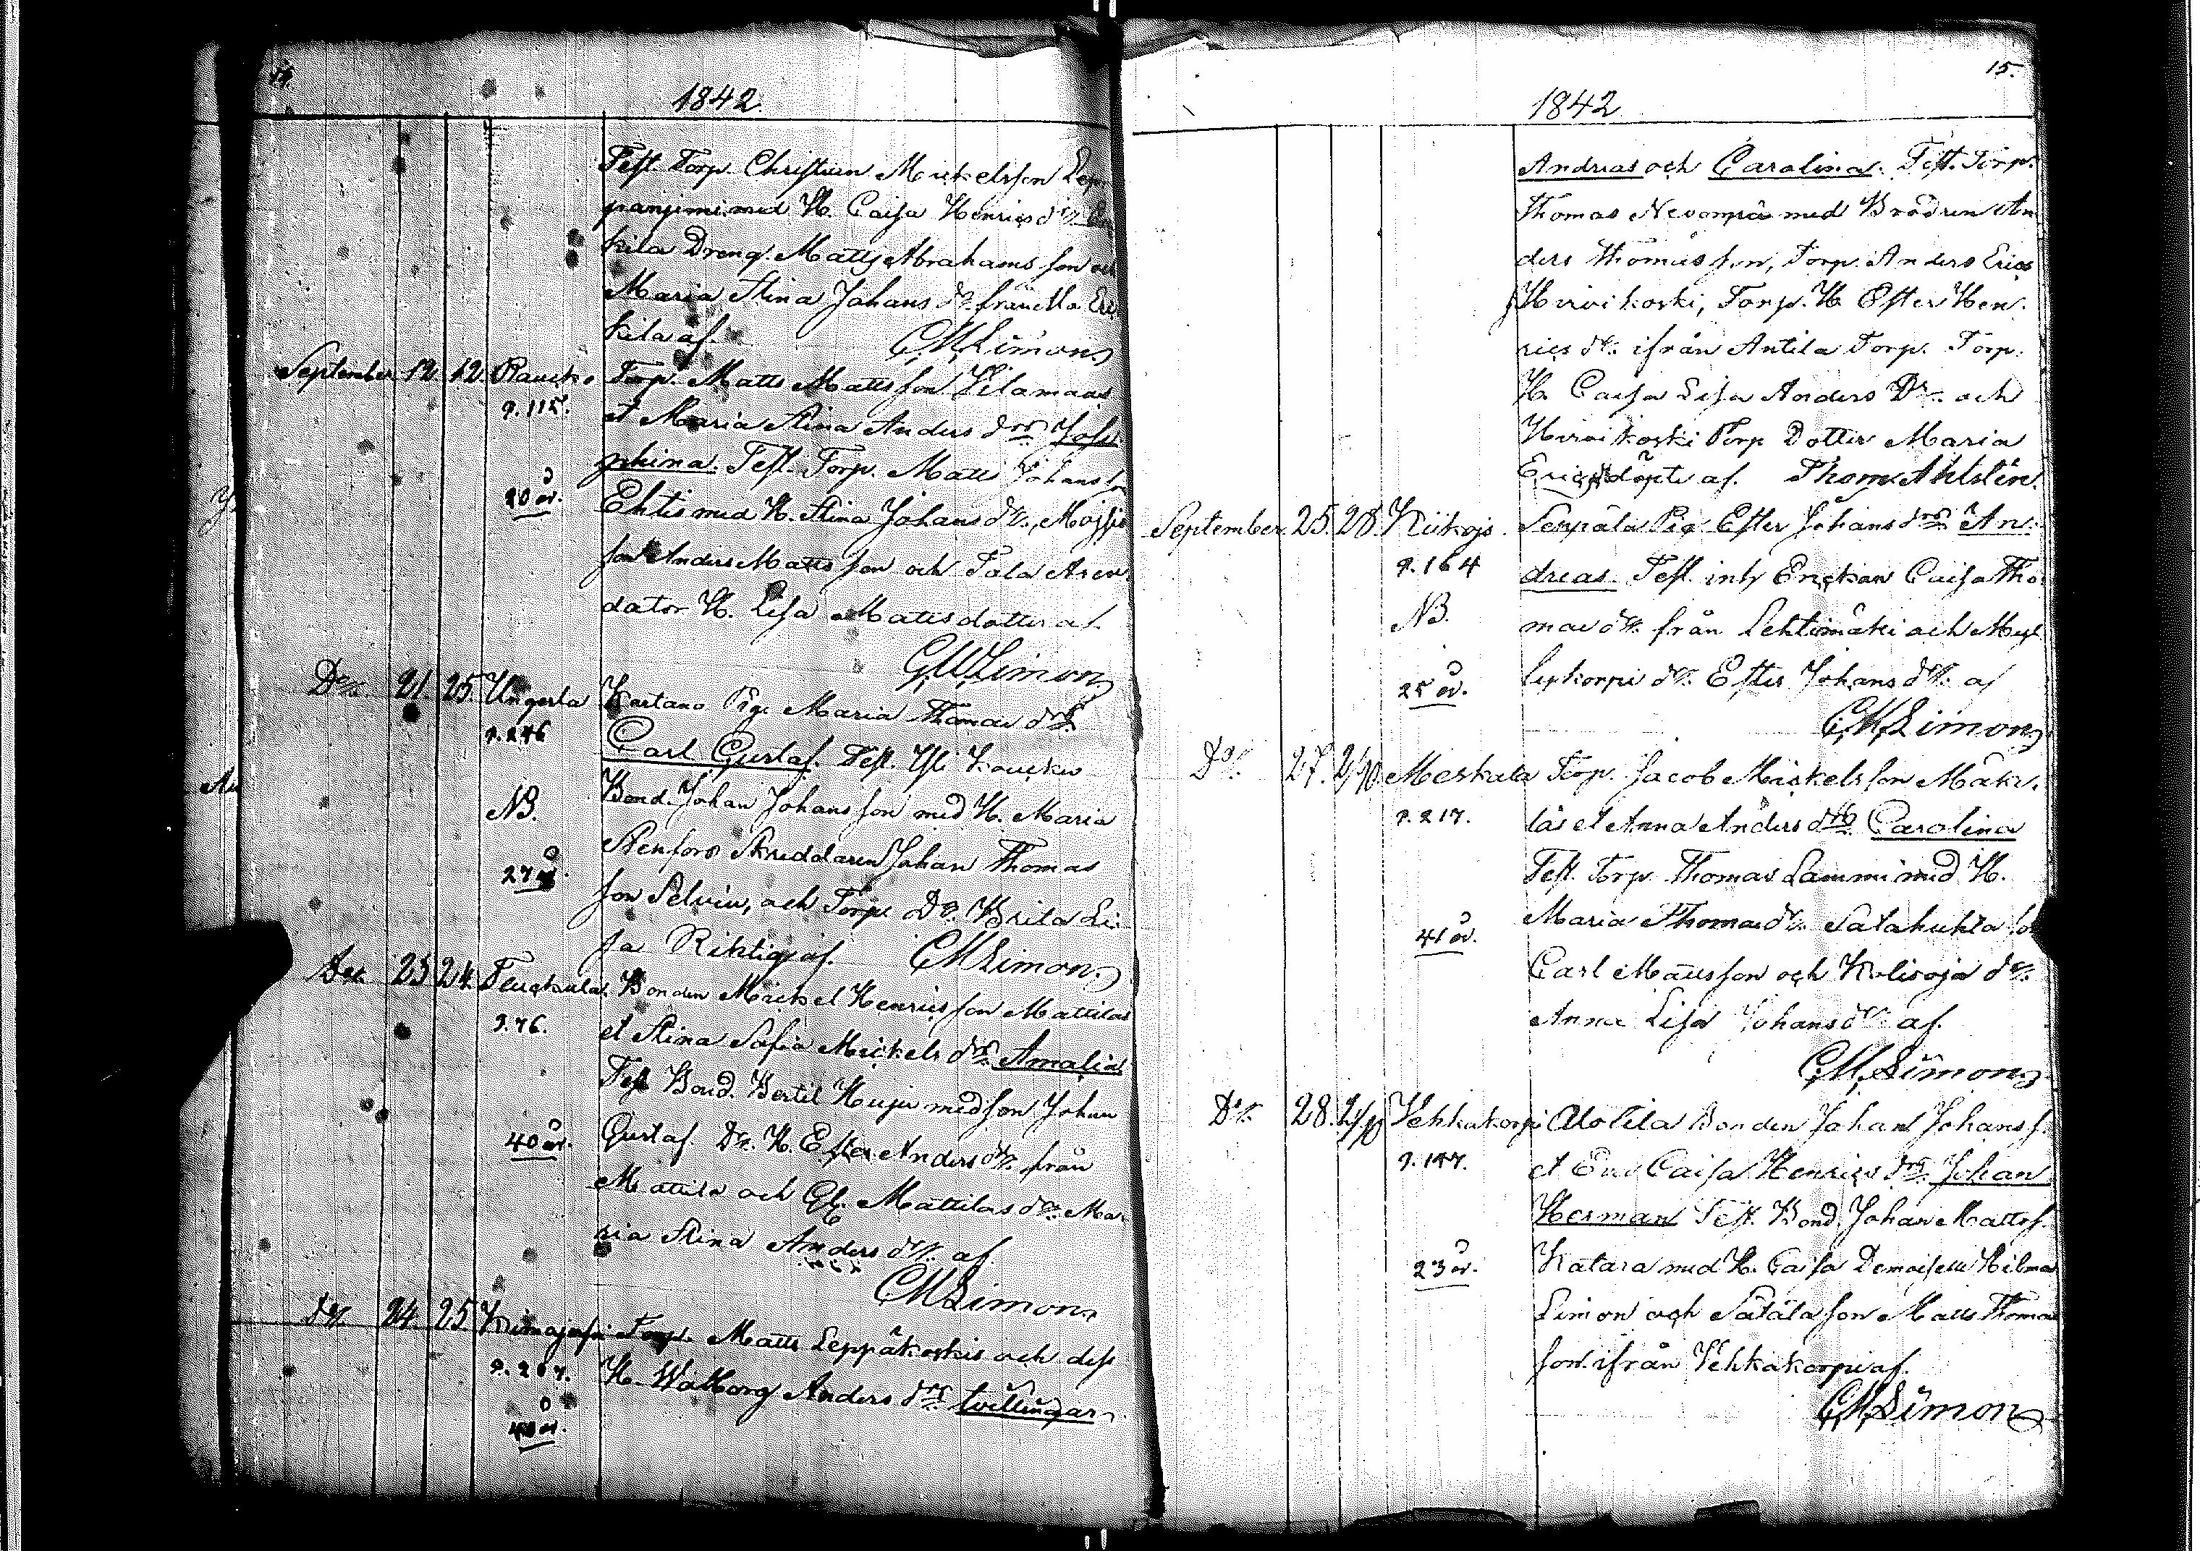 1842
Test. Torp. Christian Mickelsson Lep-
med H. Caisa Henrics dr.
kila Dreng. Matts Abrahams son och
Maria Stina Johans dr. från
kila af. CMSimon
September 12. 12. Torp. Matts Mattsson Vilamaa
p. 115. et Maria Stina Anders drs. Jose-
phina. Test. Torp. Matts Johansson
20 år. med H. Stina Johans dr.,
son Anders Matts son och Tala Aren-
dator H. Lisa Matts dotter af
CMSimon
Do. 21. 25. Kartano Pig. Maria Thomas drs.
p. 276 Carl Gustaf. Test.
NB. Bond. Johan Johansson med H. Maria
Stenfors Skreddaren Johan Thomas
27 år. son Selvin, och Torp. Dr. Brita Li-
sa af. CMSimon
23 24. Bonden Mickel Henricsson Mattila
p. 76. et Stina Safia Mickels drs. Amalia
Test Bond. Bertil med son Johan
40 år. Gustaf Dr. H. Ester Anders dr. från
Mattila och Mattilas dr. Ma-
ria Stina Anders dr. af
CMSimon
Do. 24. 25. Torp. Matts Leppäkoskis och dess
p. 207. H. Walborg Anders drs. tvillingar
15.
1842
Andreas och Carolina. Test. Torp.
Thomas med Brodren An-
ders Thomas son, Torp. Anders Erics
Hirvikoski, Torp. H. Ester Hen-
rics dr. ifrån Antila Torp. Torp.
H. Caisa Lisa Anders Dr. och
Hirvikoski Torp Dotter Maria
döpte af. Thom. Ahlstén.
September 25. 28. Kiikois Seppälä Pig Ester Johans drs. An-
p. 164 dreas. Test. Caisa Tho-
NB. mas dr. från Lehtimäki och Myl-
25 år. lykorpi dr. Ester Johans dr. af
CMSimon
Do. 27. 2/10. Meskala Torp. Jacob Mickels son Mäki-
p. 217. läs et Anna Anders drs. Carolina
Test. Torp. Thomas Lammi med H.
41 år. Maria Thomas dr. Satakuhta
Carl Mattsson och Kolivoja dr.
Anna Lisa Johans dr. af.
CMSimon
Do. 28. 2/10 Vehkakorpi Alotila Bonden Johan Johans s.
p. 147. et Eva Caisa Henrics drs. Johan
Herman Test. Bond. Johan Matts s.
23 år. Katara med H. Caisa Demoiselle Hilma
Simon och Sätälä son Matts Thomas
son. ifrån Vehkakorpi af.
CMSimon